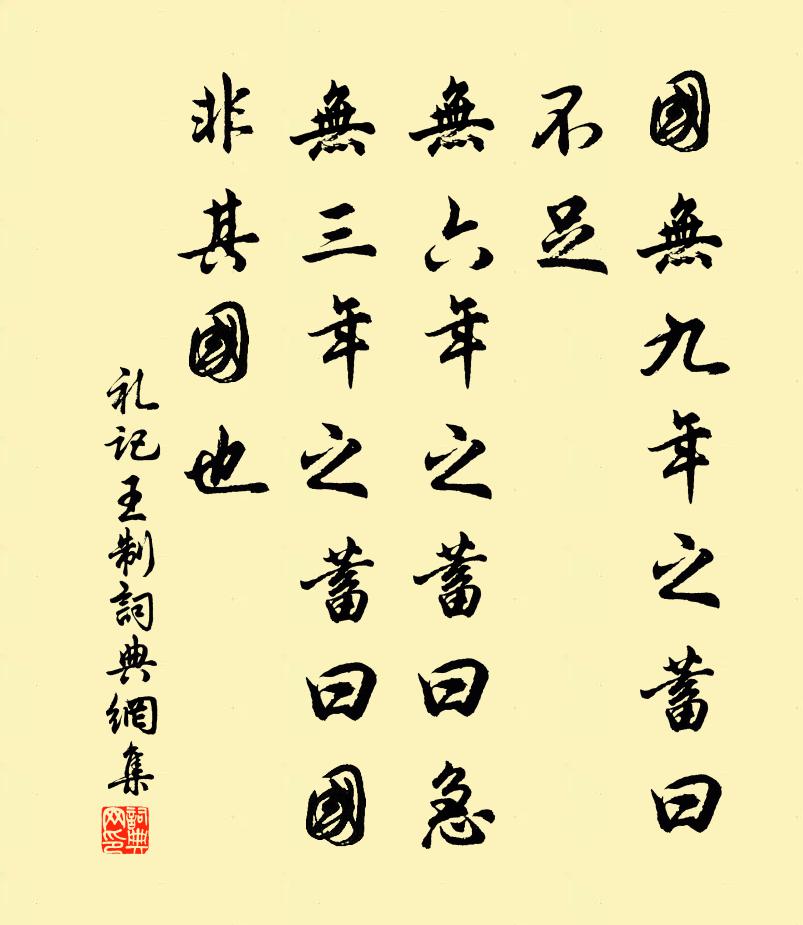 國無九年之蓄曰
不足
無六年之蓄曰急
無三年之蓄曰國
非其國也
礼记王制詞典網集
詞典网印